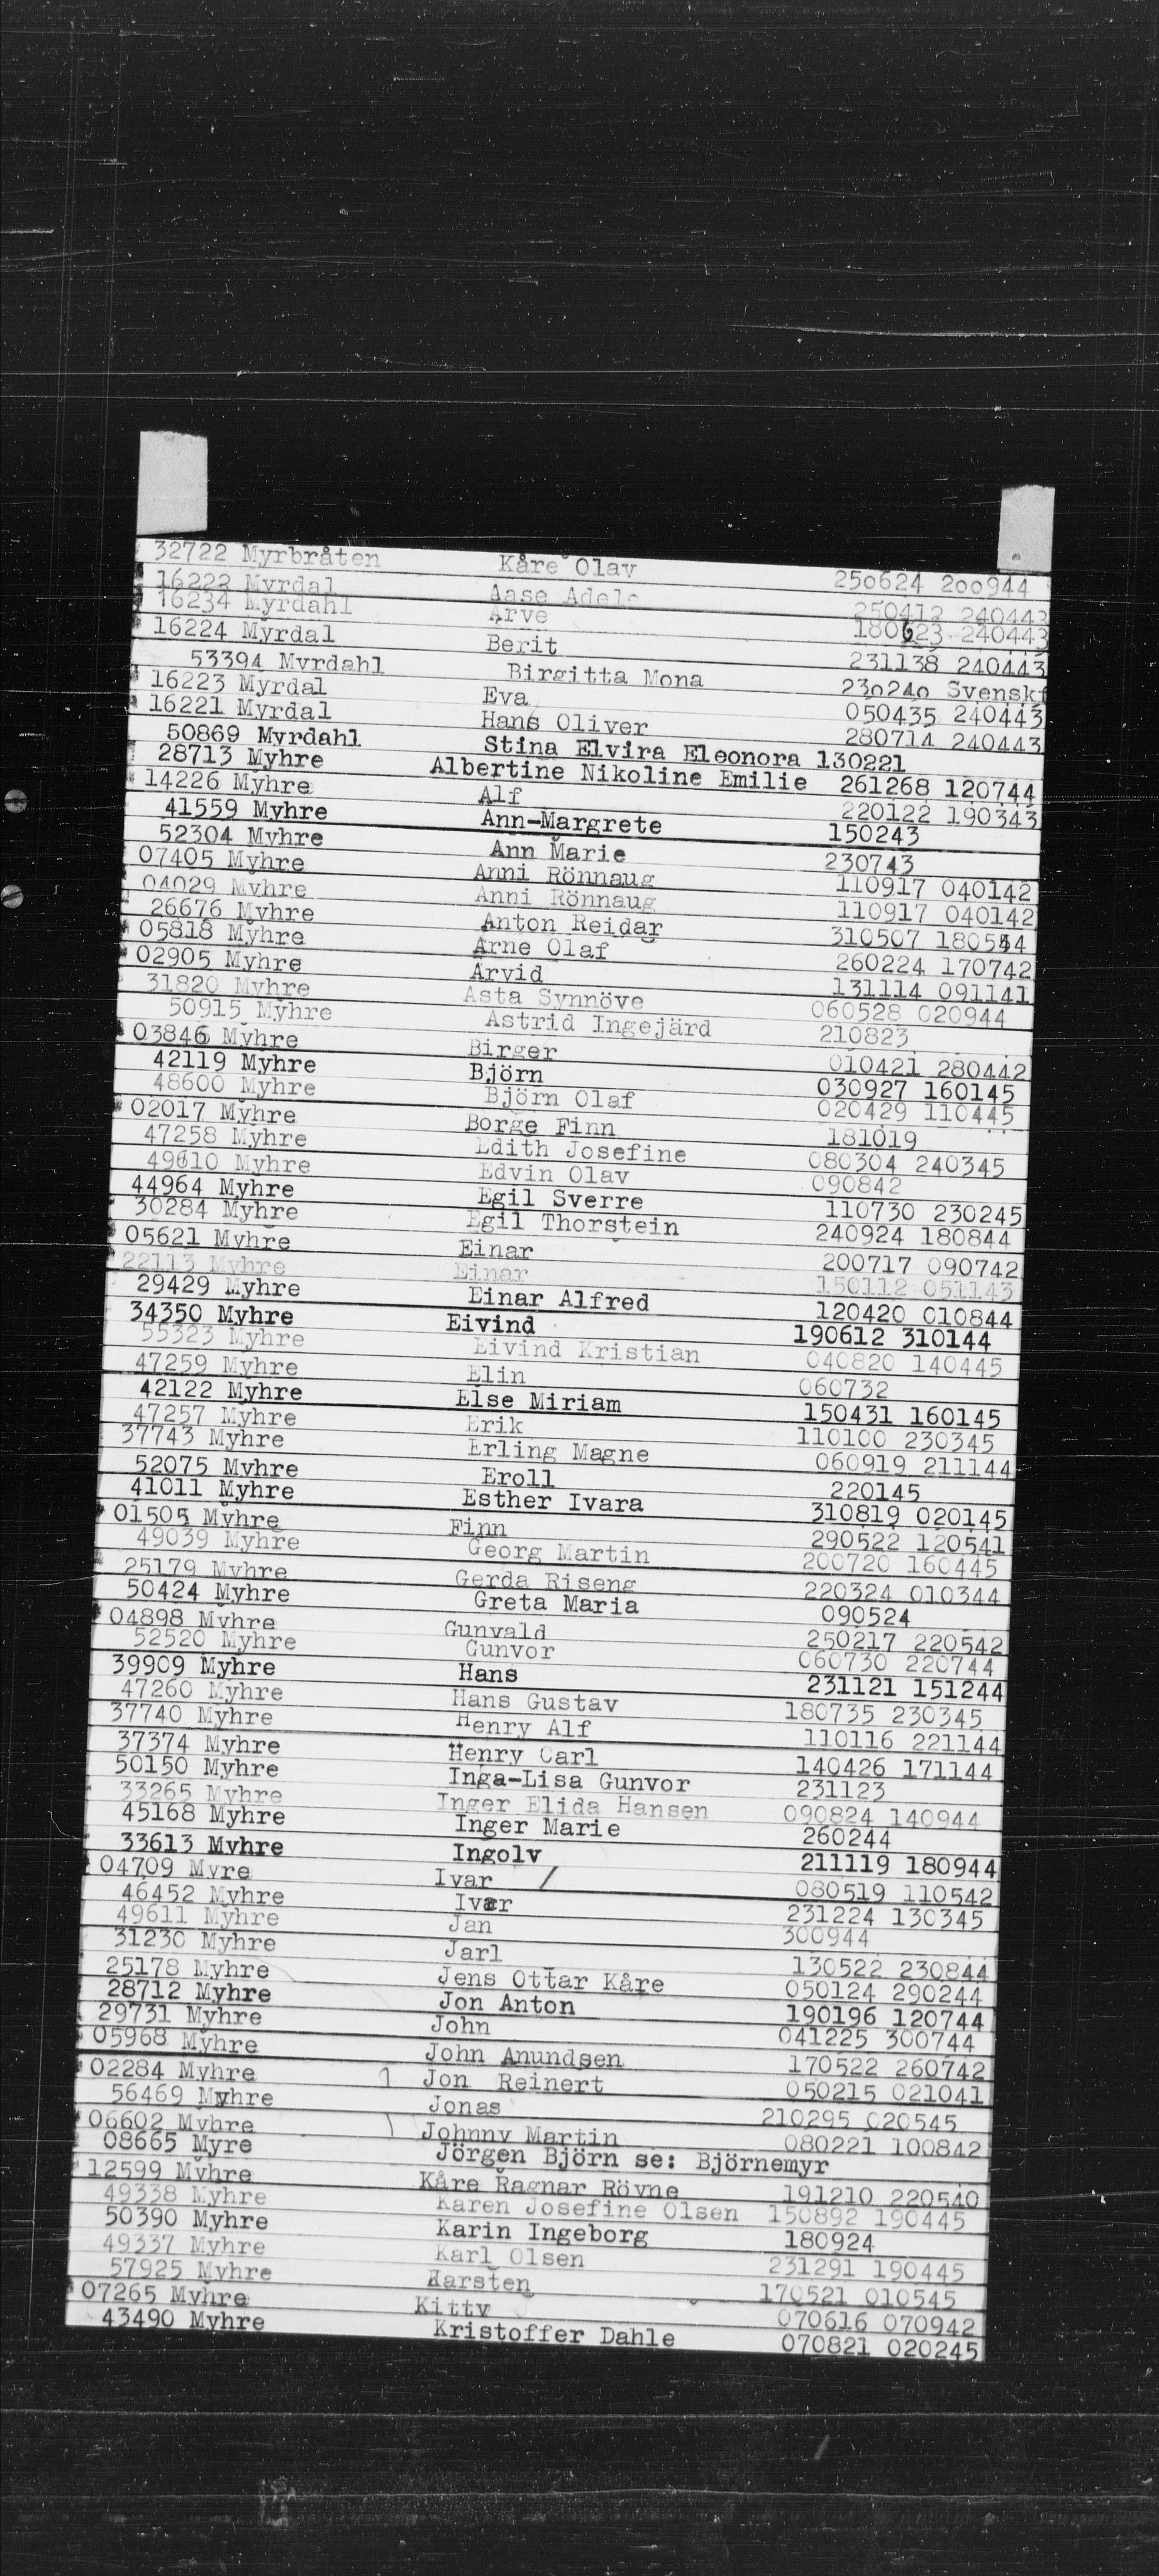 32722 Myrbråten Kåre Olav 250624 200944
16222 Myrdal Aase Adele 250412 240443
16234 Myrdahl Arve 180623 240443
16224 Myrdal Berit 231138 240443
53394 Myrdahl Birgitta Mona 230240 Svensk
16223 Myrdal Eva 050435 240443
16221 Myrdal Hans Oliver 280714 240443
50869 Myrdahl Stina Elvira Eleonora 130221
28713 Myhre Albertine Nikoline Emilie 261268 120744
14226 Myhre Alf 220122 190343
41559 Myhre Ann-Margrete 150243
52304 Myhre Ann Marie 230743
07405 Myhre Anni Rönnaug 110917 040142
04029 Myhre Anni Rönnaug 110917 040142
26676 Myhre Anton Reidar 310507 180544
05818 Myhre Arne Olaf 260224 170742
02905 Myhre Arvid 131114 091141
31820 Myhre Asta Synnöve 060528 020944
50915 Myhre Astrid Ingejärd 210823
03846 Myhre Birger 010421 280442
42119 Myhre Björn 030927 160145
48600 Myhre Björn Olaf 020429 110445
02017 Myhre Borge Finn 181019
47258 Myhre Edith Josefine 080304 240345
49610 Myhre Edvin Olav 090842
44964 Myhre Egil Sverre 110730 230245
30284 Myhre Egil Thorstein 240924 180844
05621 Myhre Einar 200717 090742
22113 Myhre Einar 150112 051143
29429 Myhre Einar Alfred 120420 010844
34350 Myhre Eivind 190612 310144
55323 Myhre Eivind Kristian 040820 140445
47259 Myhre Elin 060732
42122 Myhre Else Miriam 150431 160145
47257 Myhre Erik 110100 230345
37743 Myhre Erling Magne 060919 211144
52075 Myhre Eroll 220145
41011 Myhre Esther Ivara 310819 020145
01505 Myhre Finn 290522 120541
49039 Myhre Georg Martin 200720 160445
25179 Myhre Gerda Riseng 220324 010344
50424 Myhre Greta Maria 090524
04898 Myhre Gunvald 250217 220542
52520 Myhre Gunvor 060730 220744
39909 Myhre Hans 231121 151244
47260 Myhre Hans Gustav 180735 230345
37740 Myhre Henry Alf 110116 221144
37374 Myhre Henry Carl 140426 171144
50150 Myhre Inga-Lisa Gunvor 231123
33265 Myhre Inger Elida Hansen 090824 140944
45168 Myhre Inger Marie 260244
33613 Myhre Ingolv 211119 180944
04709 Myre Ivar / 080519 110542
46452 Myhre Ivar 231224 130345
49611 Myhre Jan 300944
31230 Myhre Jarl 130522 230844
25178 Myhre Jens Ottar Kåre 050124 290244
28712 Myhre Jon Anton 190196 120744
29731 Myhre John 041225 300744
05968 Myhre John Anundsen 170522 260742
02284 Myhre Jon Reinert 050215 021041
56469 Myhre Jonas 210295 020545
06602 Myhre Johnny Martin 080221 100842
08665 Myre Jörgen Björn se: Björnemyr
12599 Myhre Kåre Ragnar Rövne 191210 220540
49338 Myhre Karen Josefine Olsen 150892 190445
50390 Myhre Karin Ingeborg 180924
49337 Myhre Karl Olsen 231291 190445
57925 Myhre Karsten 170521 010545
07265 Myhre Kitty 070616 070942
43490 Myhre Kristoffer Dahle 070821 020245